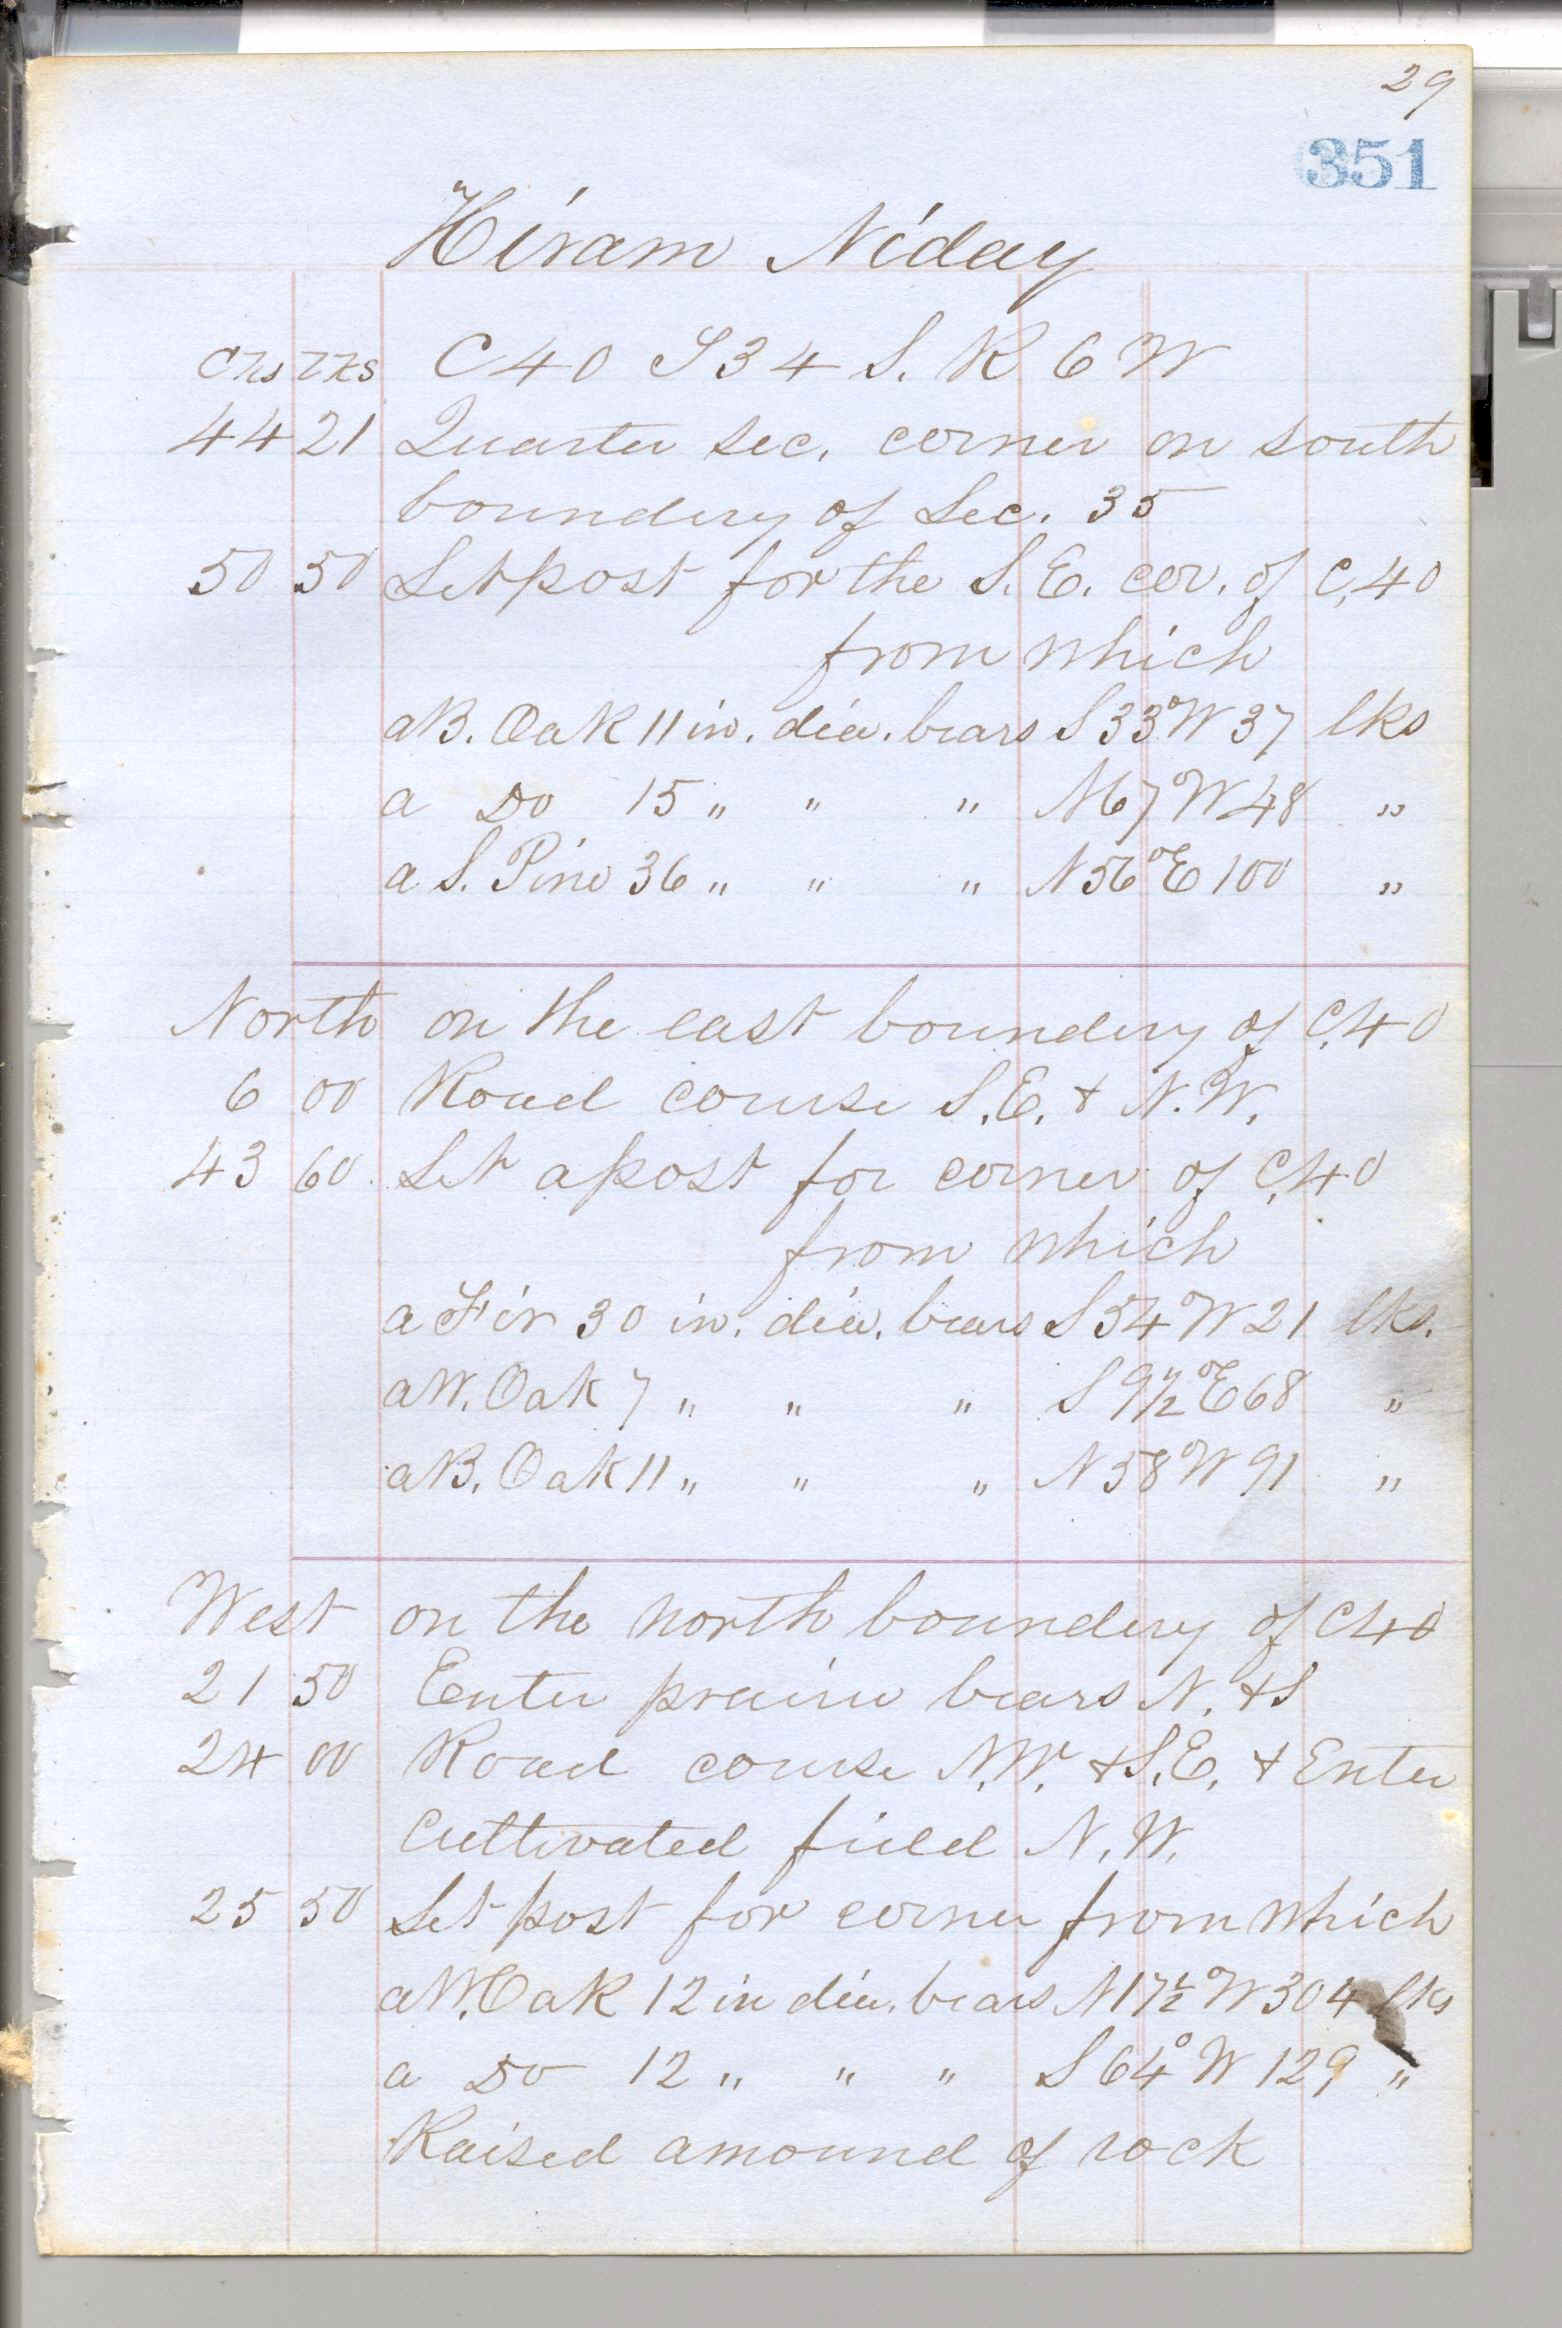 29
351
Hiram Niday
Chs Lks C 40 T 34 S. R 6 W
44 21 Quarter sec. corner on south
boundery of Sec. 35
50 50 Set post for the S. E. cor. of C,40
from which
a B. Oak 11 in. dia. bears S 33° W 37 lks
a Do 15 " " " N 67° W 48 "
a S. Pine 36 " " " N 56° E 100 "
North on the east boundery of C,40
6 00 Road course S.E. & N.W.
43 60 Set a post for corner of C,40
from which
a Fir 30 in. dia. bears S 54° W 21 lks.
a W. Oak 7 " " " S 9 1/2° E 68 "
a B. Oak 11 " " " N 58° W 91 "
West on the north boundery of C40
21 50 Enter prairie bears N. & S
24 00 Road course N.W. & S.E. & Enter
Cultivated field N. W.
25 50 Set post for corner from which
a W. Oak 12 in dia. bears N 17 1/2° W 304 lks
a Do 12 " " " S 64° W 129 "
Raised a mound of rock